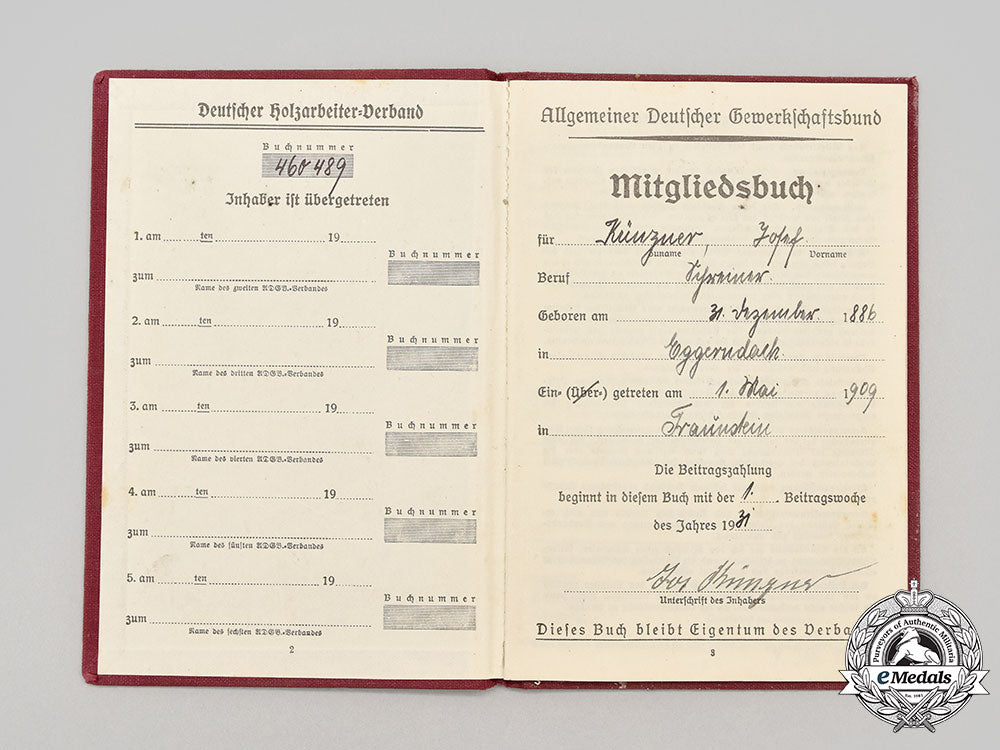 Deutscher Holzarbeiter-Verband
Buchnummer
460489
Inhaber ist übergetreten
1. am ten 19
Buchnummer
zum
Name des zweiten ADGB.-Verbandes
2. am ten 19
Buchnummer
zum
Name des dritten ADGB.-Verbandes
3. am ten 19
Buchnummer
zum
Name des vierten ADGB.-Verbandes
4. am ten 19
Buchnummer
zum
Name des fünften ADGB.-Verbandes
5. am ten 19
Buchnummer
zum
Name des sechsten ADGB.-Verbandes
2
Allgemeiner Deutscher Gewerkschaftsbund
Mitgliedsbuch
für Künzner, Josef
Zuname Vorname
Beruf Schreiner.
Geboren am 31. Dezember. 1886
in
Ein- (Über-) getreten am 1. Mai 1909
in Traunstein
Die Beitragszahlung
beginnt in diesem Buch mit der 1. Beitragswoche
des Jahres 1931
Jos Künzner
Unterschrift des Inhabers
Dieses Buch bleibt Eigentum des Verba
3
Purveyors of Authentic Militaria
eMedals